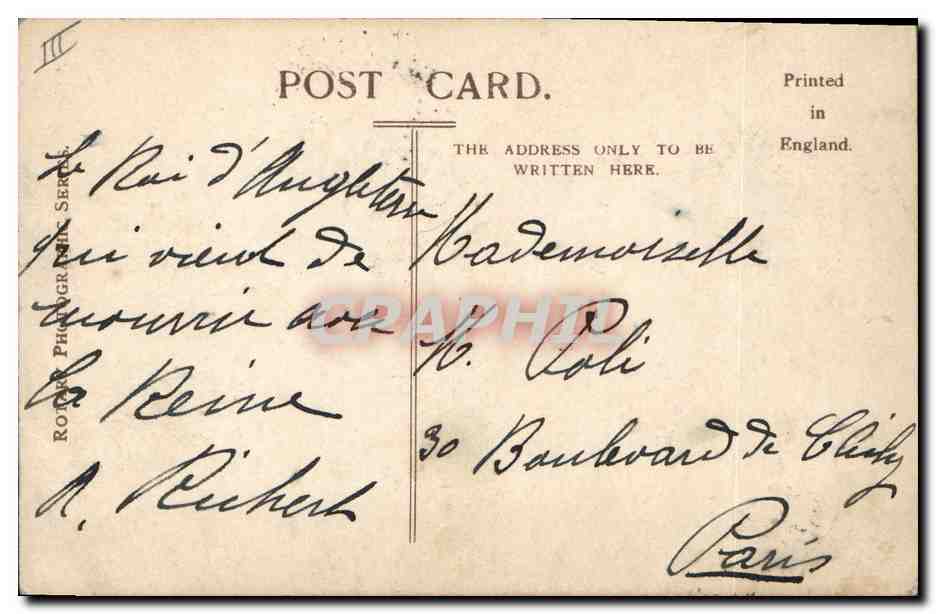 III
POST CARD.
Printed
in
England.
THE ADDRESS ONLY TO BE
WRITTEN HERE.
ROTARY PHOTOGRAPHIC SERIES.
Le Roi d'Angleterre
qui vient de
mourrir
La Reine
A. Richert
Mademoiselle
M. Poli
30 Boulevard de Clichy
Paris
CPAPHIL